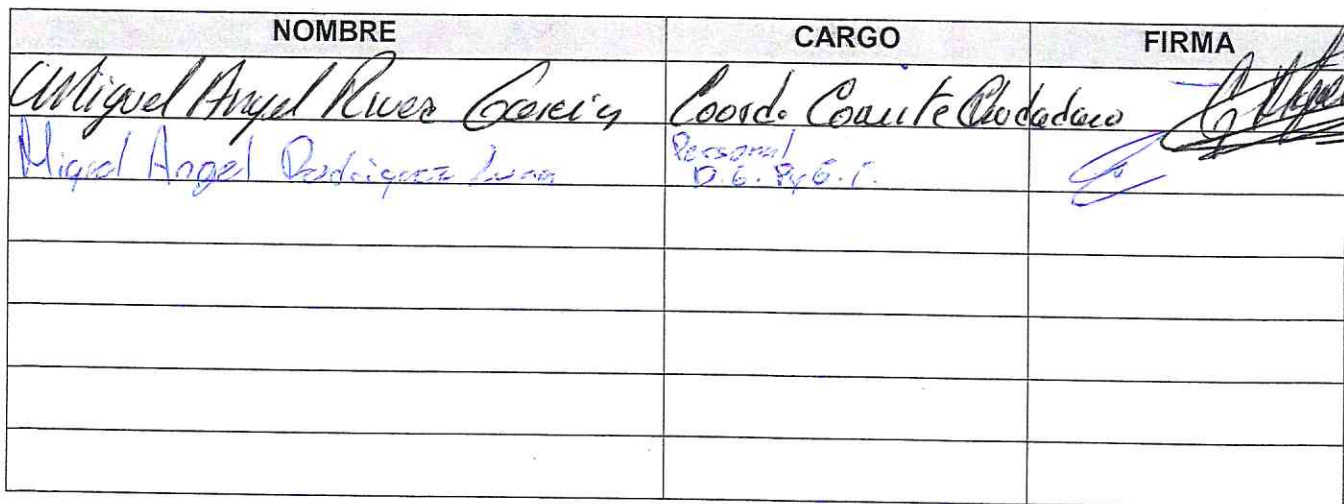 NOMBRE CARGO FIRMA
Miguel Angel River Garcia Coord. Comite Ciudadano
Miguel Angel Rodriguez Luna Personal
D.G.